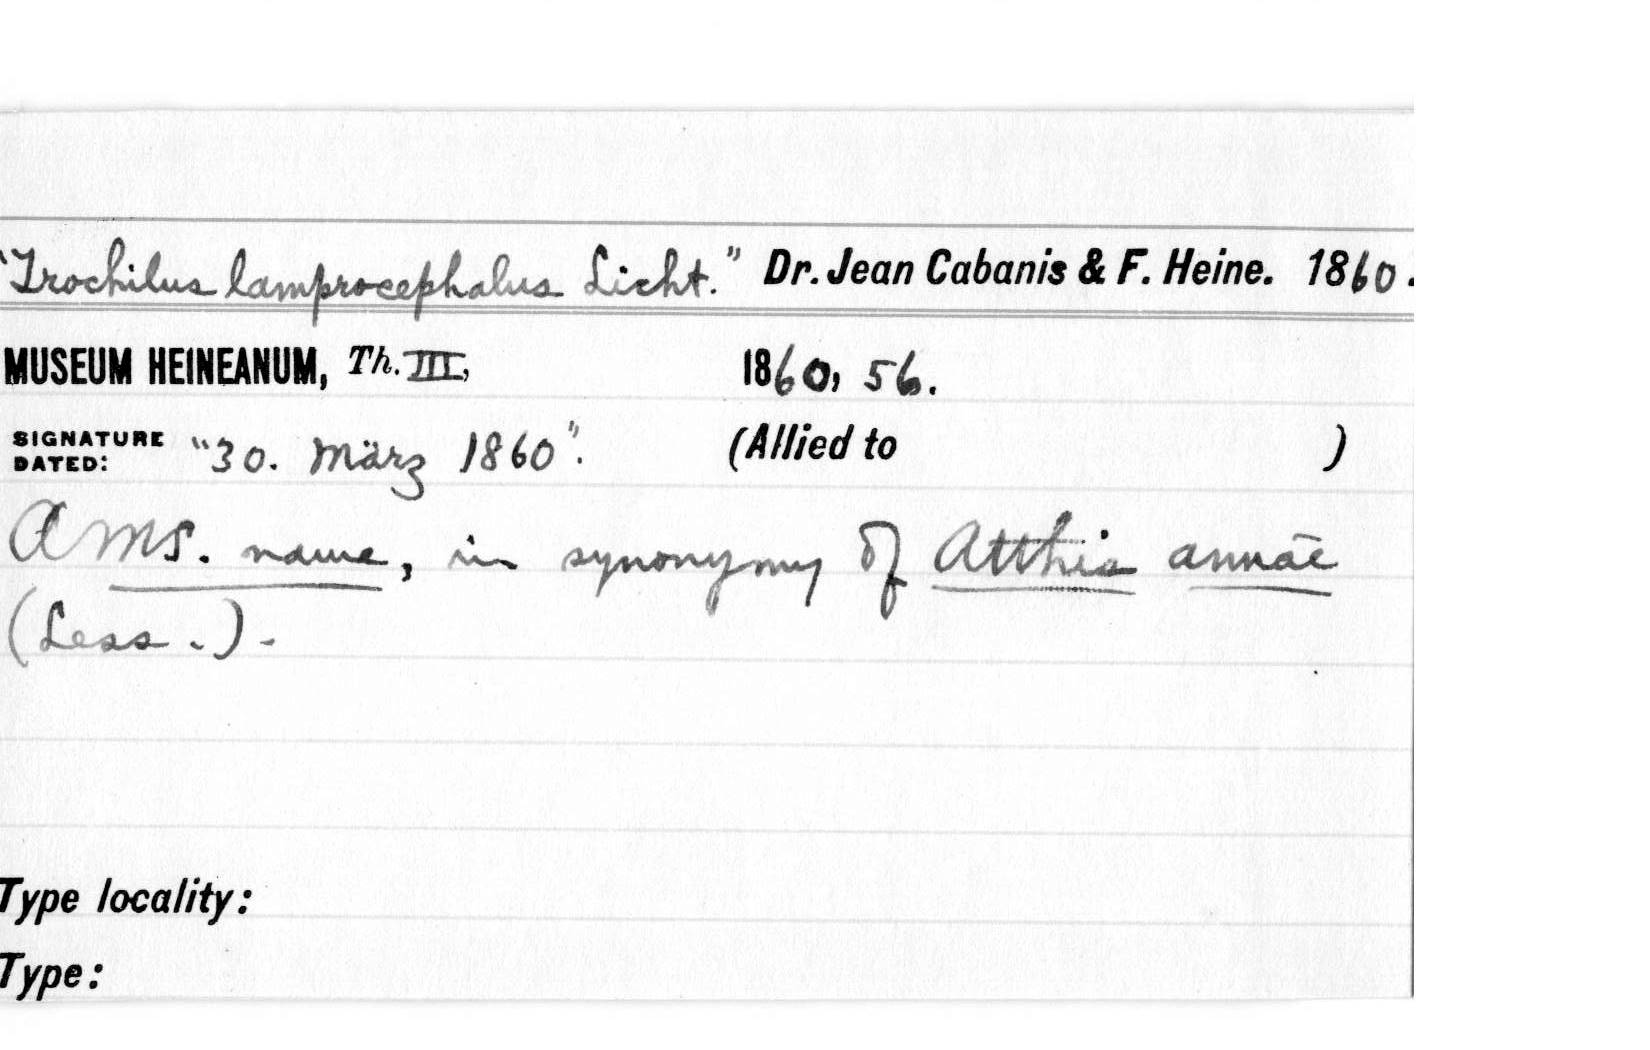 "Trochilus lamprocephalus Licht." Dr. Jean Cabanis & F. Heine. 1860.
MUSEUM HEINEANUM, Th. III, 1860, 56.
SIGNATURE DATED: "30. März 1860". (Allied to )
A MS. name, in synonymy of Atthis annae
(Less.).
Type locality:
Type: